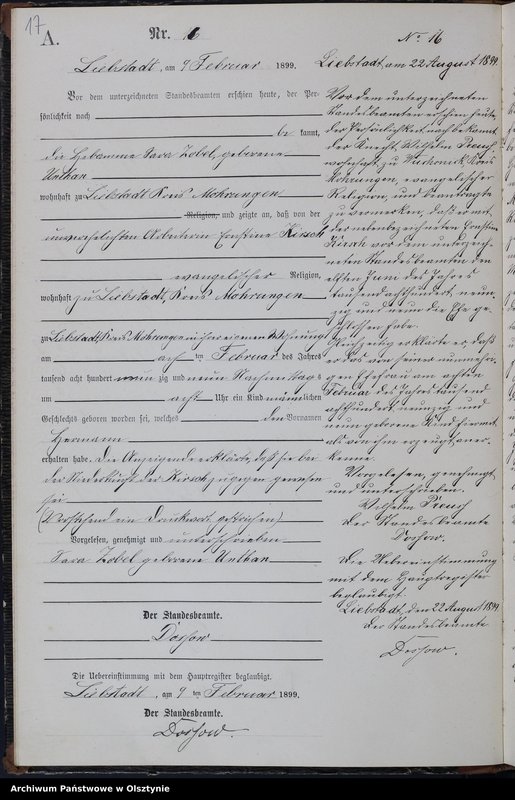 17
A.
Nr. 16
Liebstadt, am 9 Februar 1899.
Vor dem unterzeichneten Standesbeamten erschien heute, der Per-
sönlichkeit nach
be kannt,
die Hebamme Sara Zobel, geborene
Unthan
wohnhaft zu Liebstadt Kreis Mohrungen
Religion, und zeigte an, daß von der
unverehelichten Arbeiterin Ernstine Kirsch
evangelischer Religion,
wohnhaft zu Liebstadt, Kreis Mohrungen
zu Liebstadt, Kreis Mohrungen in ihrer Wohnung
am acht ten Februar des Jahres
tausend acht hundert neun zig und neun Nachmittags
um acht Uhr ein Kind männlichen
Geschlechts geboren worden sei, welches den Vornamen
Hermann
erhalten habe. Die Anzeigende erklärte, daß sie bei
der Niederkunft der Kirsch zugegen gewesen
sei
(Vorstehend ein Druckwort gestrichen)
Vorgelesen, genehmigt und unterschrieben
Sara Zobel geborene Unthan
Der Standesbeamte.
Dossow
Die Uebereinstimmung mit dem Hauptregister beglaubigt.
Liebstadt, am 9 ten Februar 1899.
Der Standesbeamte.
Dossow.
No 16
Liebstadt, am 22 August 1899.
Vor dem unterzeichneten
Standesbeamten erschien heute,
der Persönlichkeit nach bekannt
der Knecht, Wilhelm Preuss
wohnhaft zu Kreis
Mohrungen, evangelischer
Religion, und beantragte
zu vermerken, daß er mit
der nebenbezeichneten Ernstine
Kirsch vor dem unterzeich-
neten Standesbeamten den
elften Juni des Jahres
tausend achthundert neun-
zig und neun die Ehe ge-
schlossen habe.
Gleichzeitig erklärte er daß
er das von seiner nunmehri-
gen Ehefrau am achten
Februar des Jahres tausend
achthundert neunzig und
neun geborene Kind hiermit
als von ihm erzeugt aner-
kenne.
Vorgelesen, genehmigt
und unterschrieben.
Wilhelm Preuss
Der Standesbeamte
Dossow.
Die Uebereinstimmung
mit dem Hauptregister
beglaubigt
Liebstadt, den 22 August 1899.
Der Standesbeamte
Dossow.
Archiwum Państwowe w Olsztynie